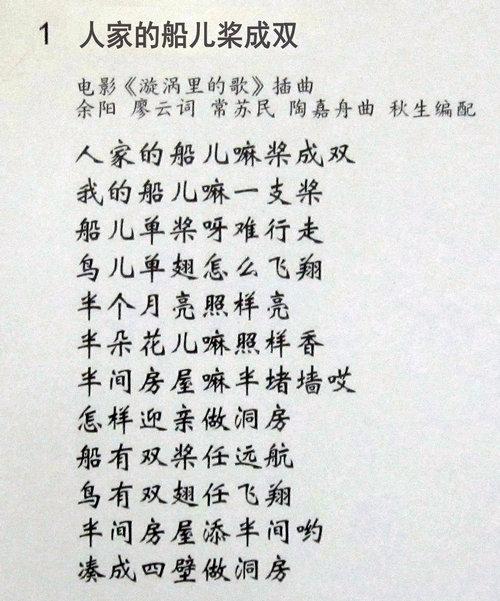 1 人家的船儿桨成双
电影《漩涡里的歌》插曲
余阳 廖云词 常苏民 陶嘉舟曲 秋生编配
人家的船儿嘛桨成双
我的船儿嘛一支桨
船儿单桨呀难行走
鸟儿单翅怎么飞翔
半个月亮照样亮
半朵花儿嘛照样香
半间房屋嘛半堵墙哎
怎样迎亲做洞房
船有双桨任远航
鸟有双翅任飞翔
半间房屋添半间哟
凑成四壁做洞房